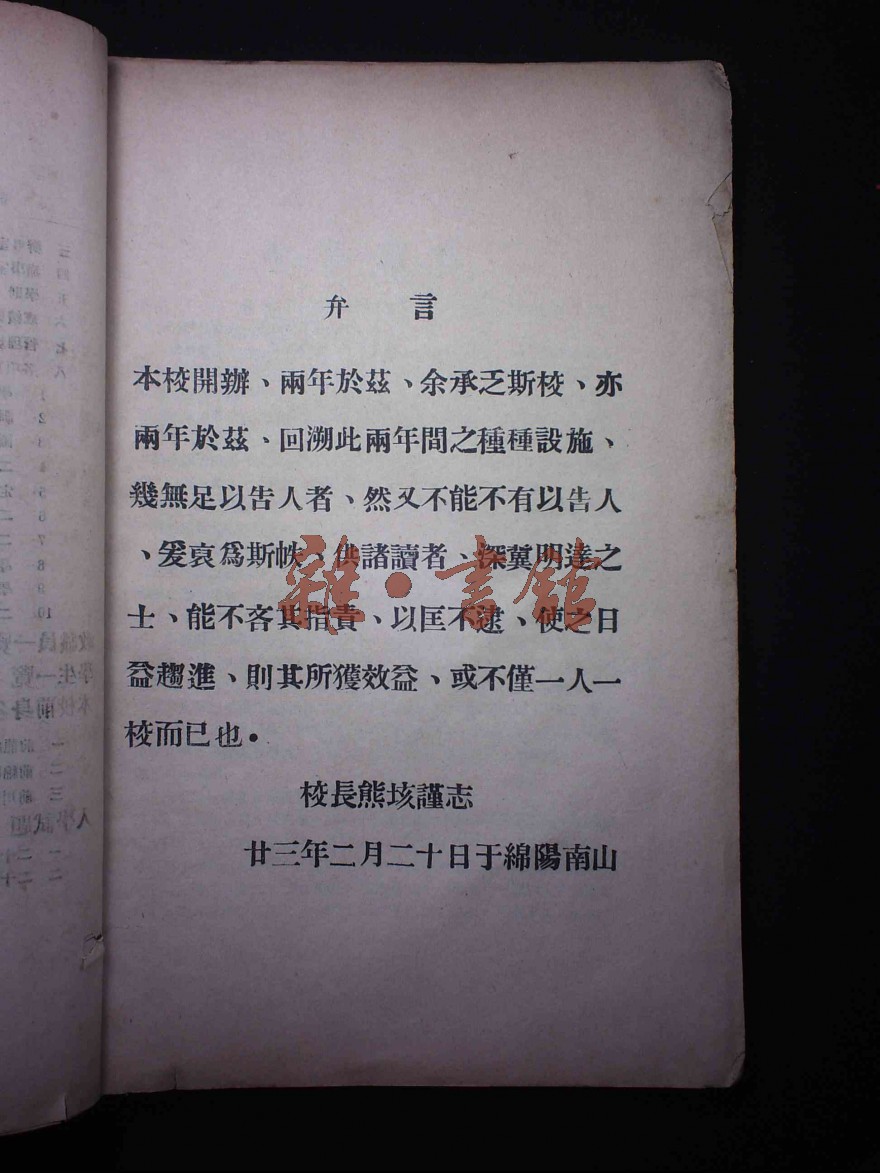 弁 言
本校開辦、兩年於茲、余承乏斯校、亦
兩年於茲、回溯此兩年間之種種設施、
幾無足以告人者、然又不能不有以告人
、爰裒爲斯帙、供諸讀者、深冀明達之
士、能不吝其指責、以匡不逮、使之日
益趨進、則其所獲效益、或不僅一人一
校而已也。
校長熊垓謹志
廿三年二月二十日于綿陽南山
雜·書館